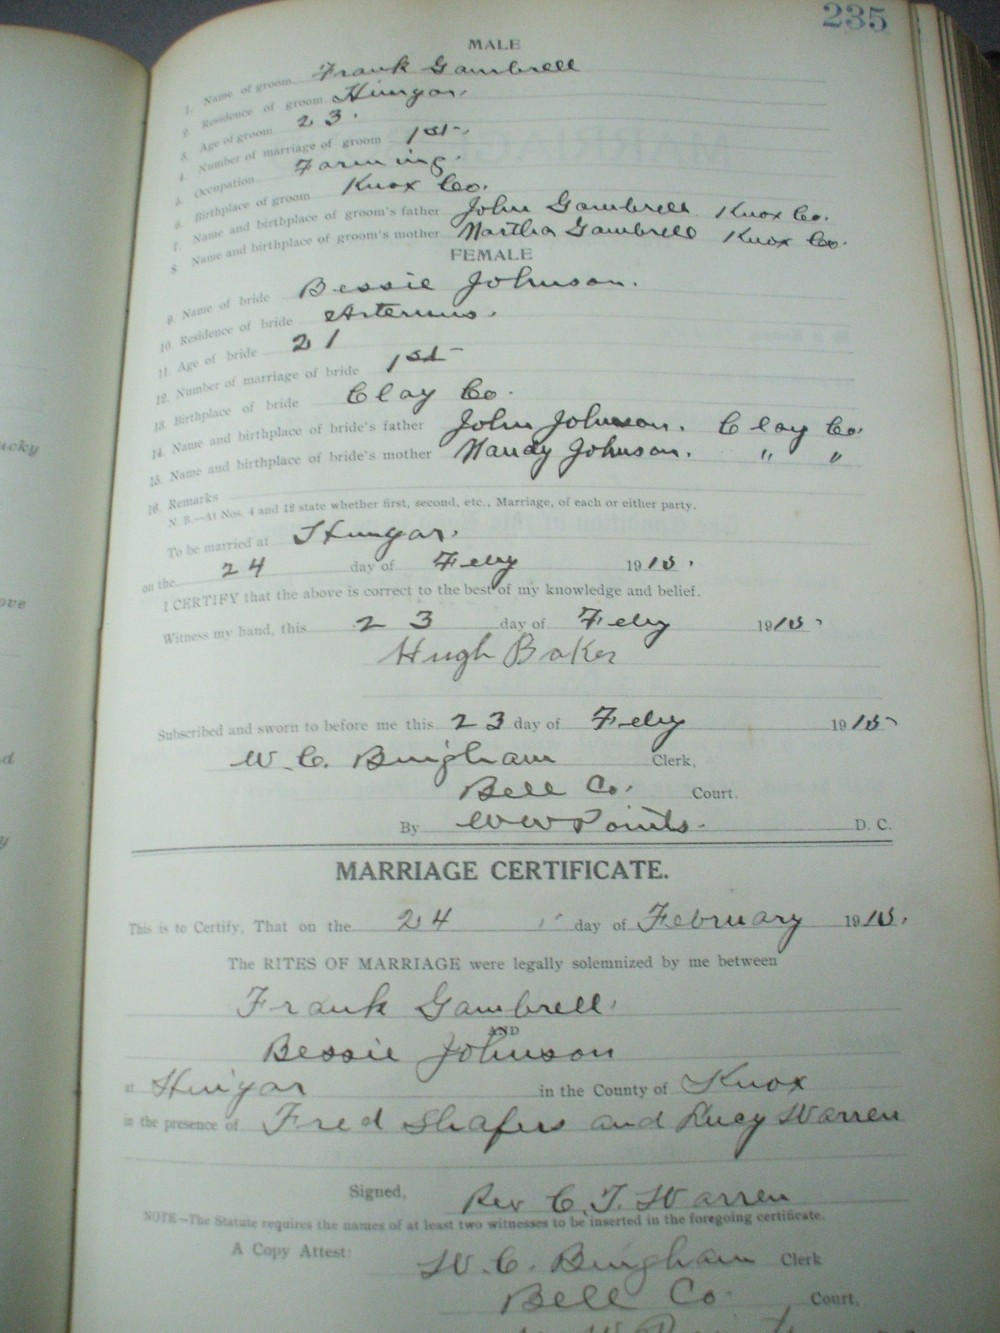 235
MALE
1. Name of groom Frank Gambrell
2. Residence of groom Hingar.
3. Age of groom 23.
4. Number of marriage of groom 1st.
5. Occupation Farming.
6. Birthplace of groom Knox Co.
7. Name and birthplace of groom's father John Gambrell Knox Co.
8 Name and birthplace of groom's mother Martha Gambrell Knox Co.
FEMALE
9. Name of bride Bessie Johnson.
10. Residence of bride Artemus.
11. Age of bride 21
12. Number of marriage of bride 1st
13. Birthplace of bride Clay Co.
14. Name and birthplace of bride's father John Johnson. Clay Co.
15. Name and birthplace of bride's mother Nandy Johnson. " "
16. Remarks
N. B.—At Nos. 4 and 12 state whether first, second, etc., Marriage, of each or either party.
To be married at Hingar.
on the 24 day of Feby 19
I CERTIFY that the above is correct to the best of my knowledge and belief.
Witness my hand, this 23 day of Feby 19
Hugh Baker
Subscribed and sworn to before me this 23 day of Feby 19
W. C. Bingham Clerk,
Bell Co. Court.
By W W Points. D. C.
MARRIAGE CERTIFICATE.
This is to Certify, That on the 24 day of February 19
The RITES OF MARRIAGE were legally solemnized by me between
Frank Gambrell.
AND
Bessie Johnson
at Hingar in the County of Knox
in the presence of Fred Shafers and Lucy Warren
Signed, Rev C. T. Warren
NOTE—The Statute requires the names of at least two witnesses to be inserted in the foregoing certificate.
A Copy Attest: W. C. Bingham Clerk
Bell Co. Court,